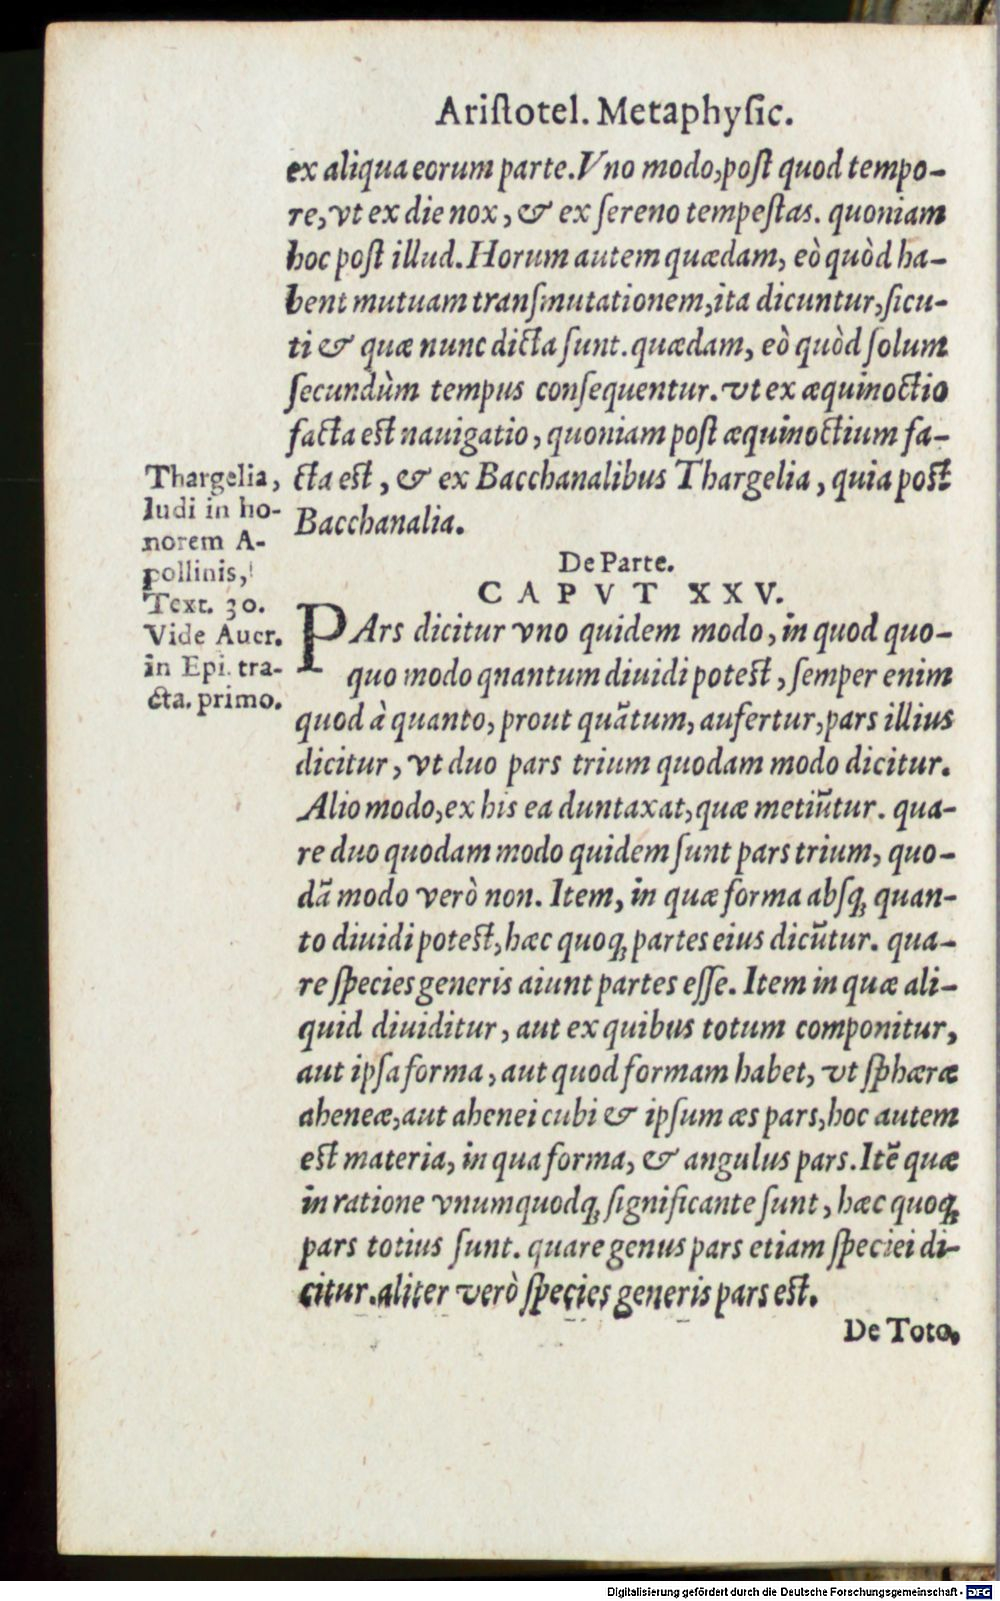 Ariſtotel. Metaphyſic.
ex aliqua eorum parte. Vno modo, poſt quod tempo-
re, vt ex die nox, & ex ſereno tempeſtas. quoniam
hoc poſt illud. Horum autem quædam, eò quòd ha-
bent mutuam tranſmutationem, ita dicuntur, ſicu-
ti & quæ nunc dicta ſunt. quædam, eò quòd ſolum
ſecundùm tempus conſequentur. vt ex æquinoctio
facta eſt nauigatio, quoniam poſt æquinoctium fa-
cta eſt, & ex Bacchanalibus Thargelia, quia poſt
Bacchanalia.
Thargelia,
ludi in ho-
norem A-
pollinis,
Text. 30.
Vide Auer.
in Epi. tra-
cta. primo.
De Parte.
CAPVT XXV.
PArs dicitur vno quidem modo, in quod quo-
quo modo qnantum diuidi poteſt, ſemper enim
quod à quanto, prout quãtum, aufertur, pars illius
dicitur, vt duo pars trium quodam modo dicitur.
Alio modo, ex his ea duntaxat, quæ metiũtur. qua-
re duo quodam modo quidem ſunt pars trium, quo-
dã modo verò non. Item, in quæ forma abſq; quan-
to diuidi poteſt, hæc quoq; partes eius dicũtur. qua-
re ſpecies generis aiunt partes eſſe. Item in quæ ali-
quid diuiditur, aut ex quibus totum componitur,
aut ipſa forma, aut quod formam habet, vt ſphæræ
aheneæ, aut ahenei cubi & ipſum æs pars, hoc autem
eſt materia, in qua forma, & angulus pars. Itẽ quæ
in ratione vnumquodq; ſignificante ſunt, hæc quoq;
pars totius ſunt. quare genus pars etiam ſpeciei di-
citur. aliter verò ſpecies generis pars eſt.
De Toto,
Digitalisierung gefördert durch die Deutsche Forschungsgemeinschaft - DFG